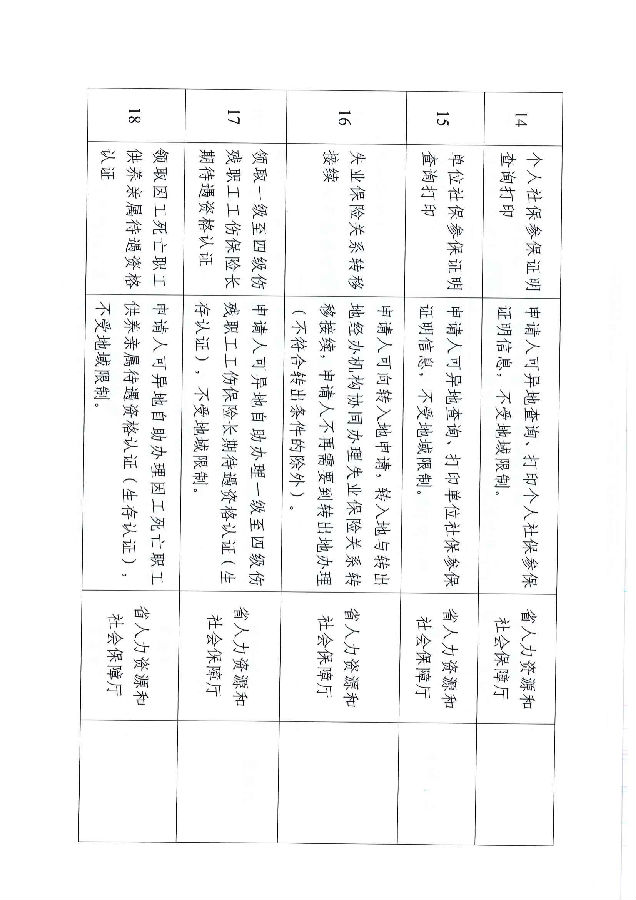 14
个人社保参保证明
查询打印
申请人可异地查询、打印个人社保参保
证明信息，不受地域限制。
省人力资源和
社会保障厅
15
单位社保参保证明
查询打印
申请人可异地查询、打印单位社保参保
证明信息，不受地域限制。
省人力资源和
社会保障厅
16
失业保险关系转移
接续
申请人可向转入地申请，转入地与转出
地经办机构协同办理失业保险关系转
移接续，申请人不再需要到转出地办理
（不符合转出条件的除外）。
省人力资源和
社会保障厅
17
领取一级至四级伤
残职工工伤保险长
期待遇资格认证
申请人可异地自助办理一级至四级伤
残职工工伤保险长期待遇资格认证（生
存认证），不受地域限制。
省人力资源和
社会保障厅
18
领取因工死亡职工
供养亲属待遇资格
认证
申请人可异地自助办理因工死亡职工
供养亲属待遇资格认证（生存认证），
不受地域限制。
省人力资源和
社会保障厅